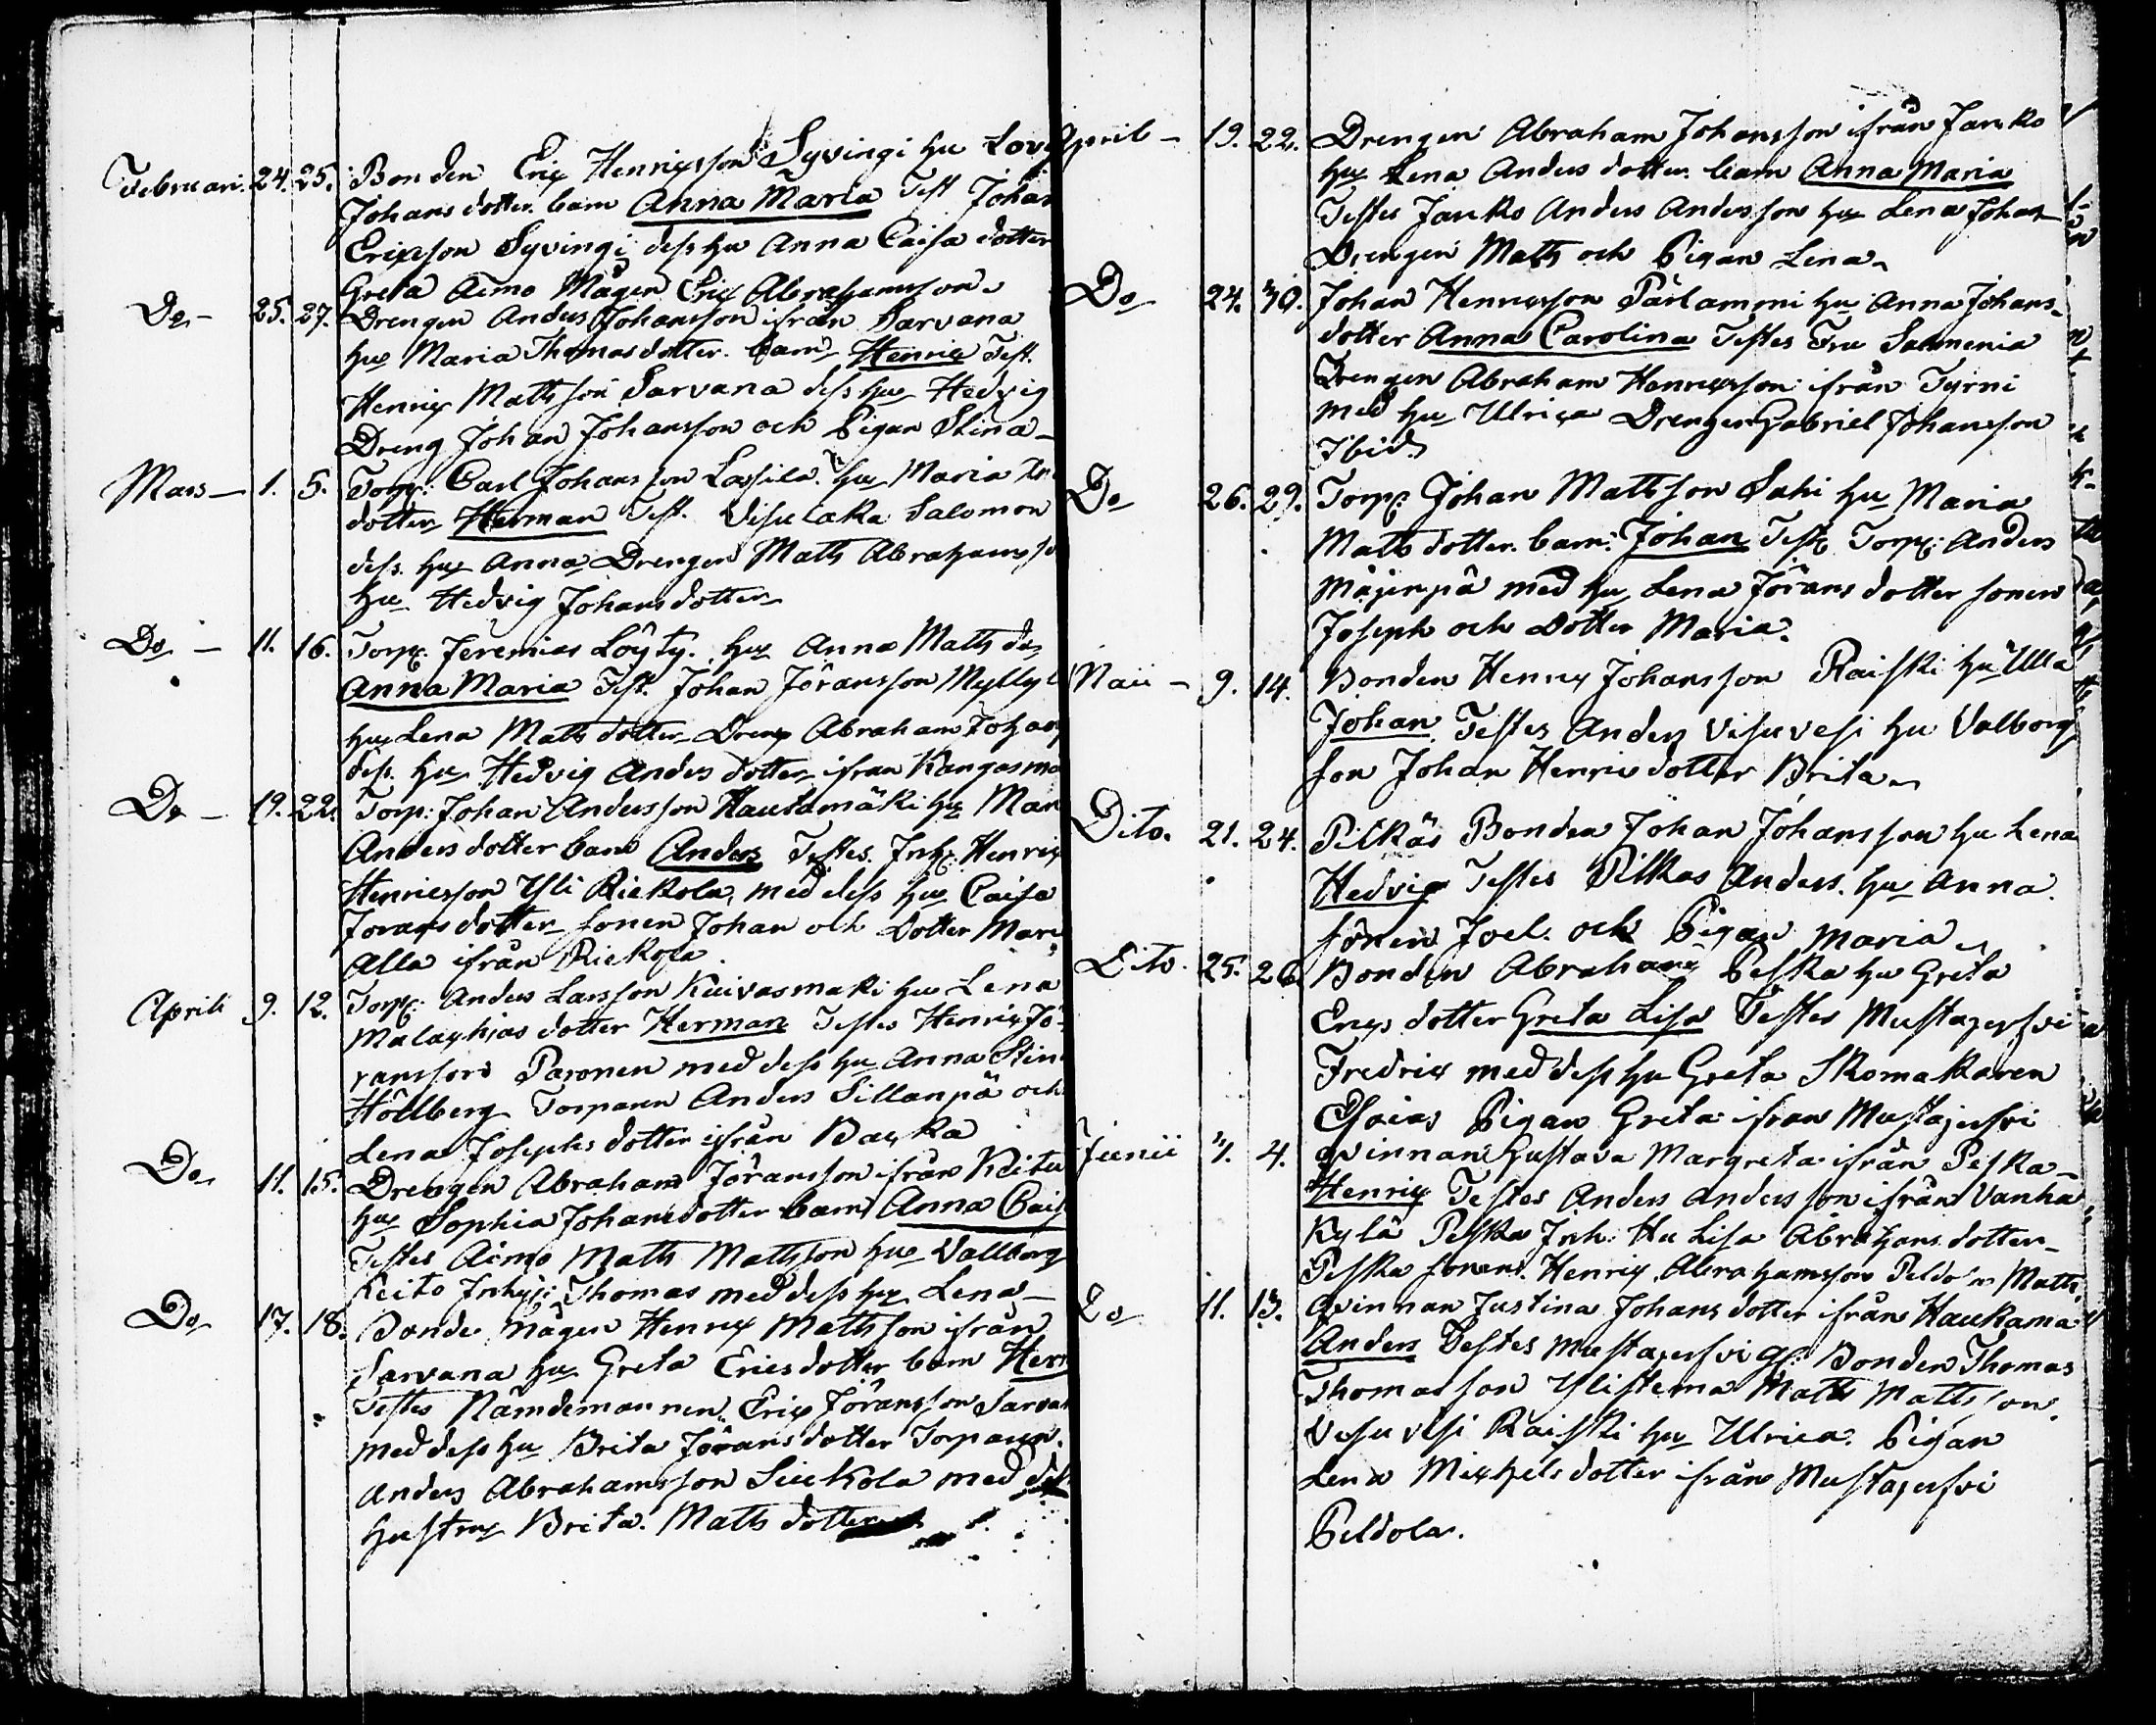 Februari. 24. 25. Bonden Eric Henricsson Syvingi hu Lov
Johans dotter. barn Anna Maria Test Johan
Ericsson Syvingi dess hu Anna Caisa dotter
Greta Aimo Mågen Eric Abrahamsson.
Do - 25. 27. Drengen Anders Johansson ifrån Sarvana
hu Maria Thomasdotter. barn Henric Test.
Henric Mattsson Sarvana dess hu Hedvig
Dreng Johan Johansson och Pigan Stina
Mars - 1. 5. Torp: Carl Johansson Lassila. hu Maria
dotter Herman Test. Visulaka Salomon
dess. hu Anna Drengen Matts Abrahamsso
hu Hedvig Johansdotter
Do - 11. 16. Torp. Jeremias Löyty. hu Anna Matts do
Anna Maria Test. Johan Jöransson Myllyl
hu Lena Matts dotter Dreng Abraham Johans
dess. hu Hedvig Anders dotter ifrån Kangasmä
Do - 19. 22. Torp: Johan Andersson Hautamäki hu Mari
Anders dotter barn Anders Testes. Inh: Henric
Henricsson Yli Rickola, med dess hu Caisa
Jorans dotter sonen Johan och Dotter Mari
Alla ifrån Rickola.
Aprili 9. 12. Torp: Anders Larsson Kuivasmaki hu Lena
Malachias dotter Herman Testes Henric Jö-
ransson Paronen med dess hu Anna Stin
Höllberg Torparen Anders Sillanpä och
Lena Josephs dotter ifrån Backa
Do 11. 15. Drengen Abraham Jöransson ifrån Keitu
hu Sophia Johansdotter barn Anna Cais
Testes Aimo Matts Mattsson hu Vallborg
Keito Inhys: Thomas med dess hu Lena
Do 17. 18. Bonde Mågen Henric Mattsson ifrån
Sarvana hu Greta Ericsdotter barn Her
Testes Nämdemannen Eric Jöransson Sarvan
med dess hu Brita Jörans dotter Torparen.
Anders Abrahamsson Siukola med dess
hustru Brita. Matts dotter
April - 19. 22. Drengen Abraham Johansson ifrån Jauko
hu Lena Anders dotter. barn Anna Maria
Testes Jauko Anders Andersson hu Lena Johan
Drengen Matts och Pigan Lena
Do 24. 30. Johan Henricsson Pärlammi hu Anna Johans-
dotter Anna Carolina Testes Fru Sammenia
Drengen Abraham Henricsson ifrån Tyrni
med hu Ulrica Drengen Gabriel Johansson
Ibid.
Do 26. 29. Torp: Johan Mattsson Sahi hu Maria
Matts dotter. barn: Johan Test: Torp: Anders
Mäjenpä med hu Lena Jörans dotter sonen
Joseph och Dotter Maria.
Maii - 9. 14. Bonden Henric Johansson Raiski hu Ulla
Johan. Testes Anders Visuvesi hu Valborg
son Johan Henric dotter Brita
Dito. 21. 24. Pilkäs Bonden Johan Johansson hu Lena
Hedvig Testes Pilkas Anders. hu Anna.
sonen Joel. och Pigan Maria
Dito. 25. 26. Bonden Abraham Peska hu Greta
Erics dotter Greta Lisa Testes Mustajersvi
Fredric med dess hu Greta Skomakaren
Esaias Pigan Greta ifrån Mustajersvi
Junii 3. 4. Qvinnan Gustava Margreta ifrån Peska
Henric Testes Anders Andersson ifrån Vanha
Kylä Peska Inh: Hu Lisa Abrahams dotter
Peska sonen. Henric Abrahamsson Peldo Matts.
Do 11. 13. Qvinnan Justina Johans dotter ifrån Haukama
Anders Testes Mustajersvi gl: Bonden Thomas
Thomasson Ylistema Matts Mattsson.
Visuvesi Raiski hu Ulrica. Pigan
Lena Michels dotter ifrån Mustajersvi
Peldola.